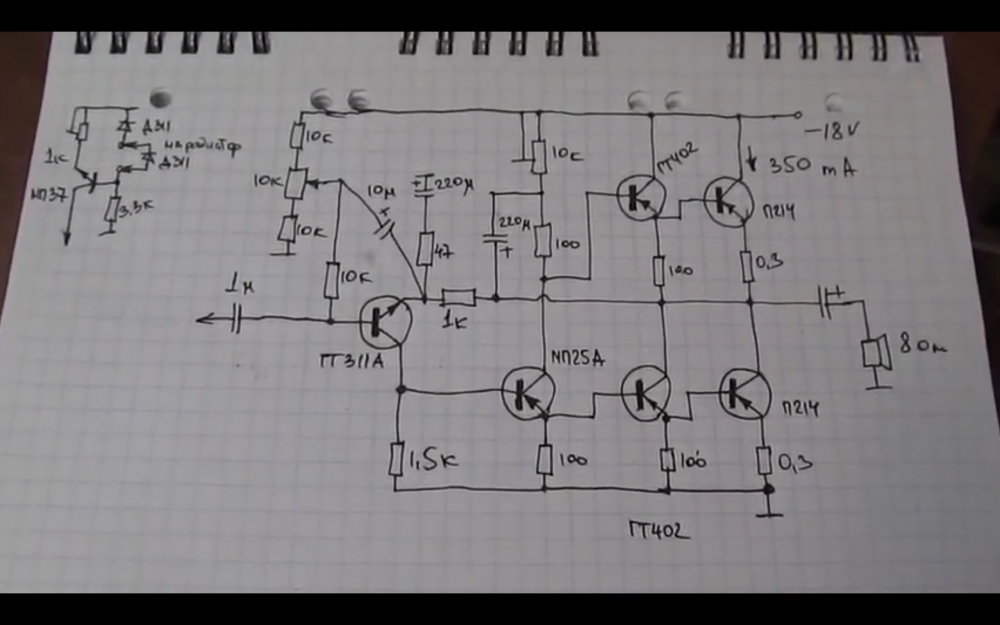 ДЗ11
1к
на радиатор
ДЗ11
МП37
3.3к
10к
10к
10к
10к
10м
220м
47
1м
ГТ311А
1к
1,5к
10к
220м
100
ГТ402
350 mA
-18V
П214
100
0,3
8 Ом
МП25А
П214
100
100
0,3
ГТ402